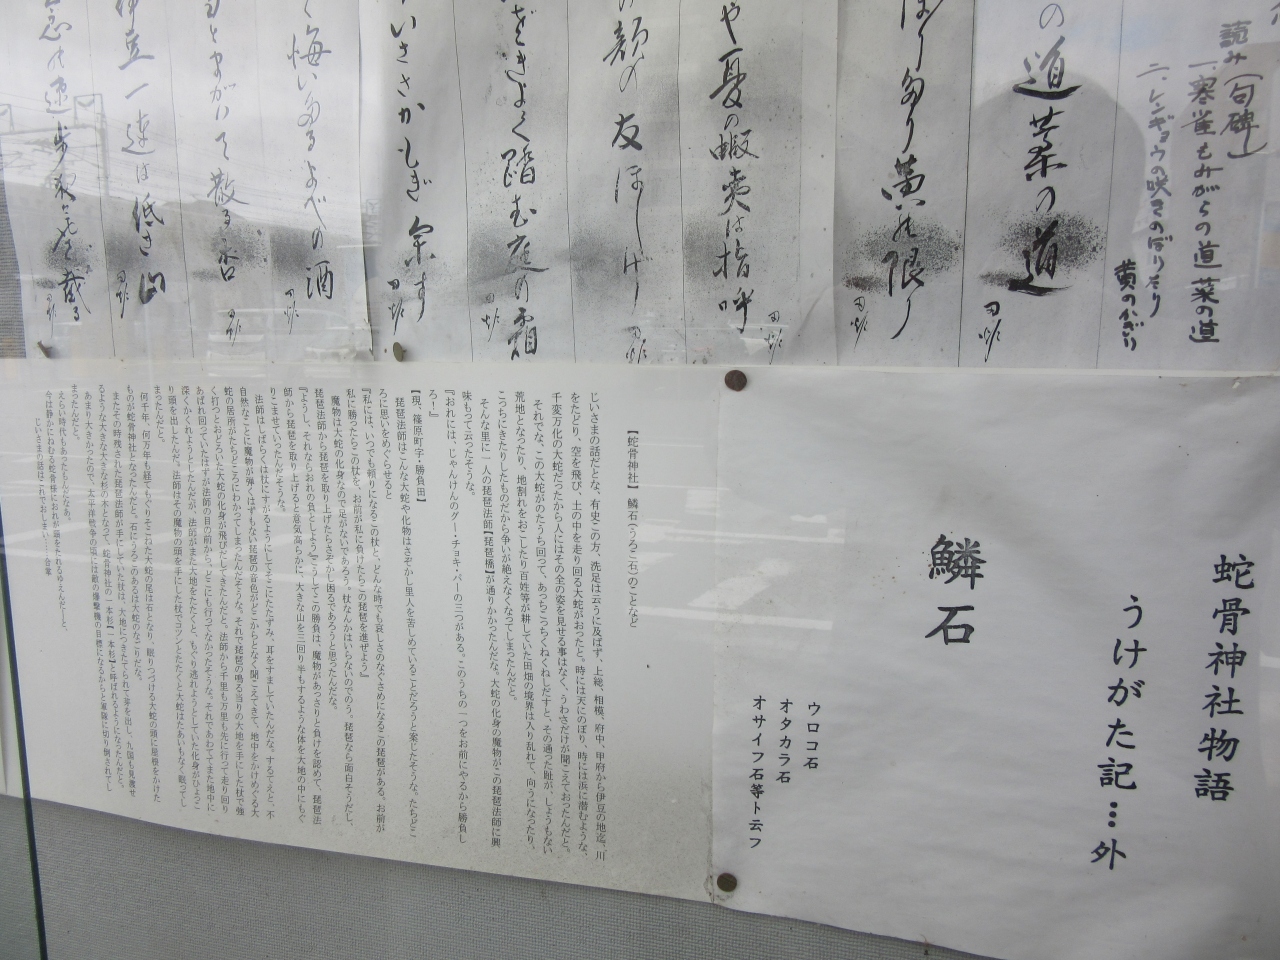 読み(句碑)
一、寒雀もみがらの道菜の道
二、レンギョウの咲きのぼりたり
黄のかぎり
の道菜の道
ぼりたり黄の限り
や夏の蝦夷は指呼
の顔の友ほしげ
ぞきよく踏む庭の霜
いささかもぎ余す
く悔いたるよべの酒
るとまがいて散る
伊豆一連は低き山
蛇骨神社物語
うけがた記…外
鱗石
ウロコ石
オタカラ石
オサイフ石等ト云フ
【蛇骨神社】鱗石(うろこ石)のことなど
じいさまの話だとな、有史この方、洗足は云うに及ばず、上総、相模、府中、甲府から伊豆の地迄、川
をたどり、空を飛び、土の中を走り回る大蛇がおったと。時には天にのぼり、時には浜に潜むような、
千変万化の大蛇だったから人にはその全の姿を見せる事はなく、うわさだけが聞こえておったんだと。
それでな、この大蛇がのたうち回って、あっちこっちくねくねしだすと、その通った趾が、しょうもない
荒地となったり、地割れをおこしたり百姓等が耕していた田畑の境界は入り乱れて、向うになったり、
こっちにきたりしたものだから争いが絶えなくなってしまったんだと。
そんな里に一人の琵琶法師【琵琶橋】が通りかかったんだな。大蛇の化身の魔物がこの琵琶法師に興
味もって云ったそうな。
『おれには、じゃんけんのグー・チョキ・パーの三つがある。このうちの一つをお前にやるから勝負し
ろー』
【現、篠原町字・勝負田】
琵琶法師はこんな大蛇や化物はさぞかし里人を苦しめていることだろうと案じたそうな。たちどこ
ろに思いをめぐらせると
『私には、いつでも頼りになるこの杖と、どんな時でも哀しさのなぐさめになるこの琵琶がある。お前が
私に勝ったらこの杖を、お前が私に負けたらこの琵琶を進ぜよう』
魔物は大蛇の化身なので足がないであろう、杖なんかはいらないのでのう。琵琶なら面白そうだし、
琵琶法師から琵琶を取り上げたらさぞかし困るであろうと思ったんだな。
『ようし、それならおれの負としよう』こうしてこの勝負は、魔物があっさりと負けを認めて、琵琶法
師から琵琶を取り上げると意気高らかに、大きな山を三回り半もするような体を大地の中にもぐ
りこませていったんだそうな。
法師はしばらくは杖にすがるようにしてそこにたたずみ、耳をすましていたんだな。するてえと、不
自然なことに魔物が弾くはずもない琵琶の音色がどこからとなく聞こえてきて、地中をかけめぐる大
蛇の居所がたちどころにわかってしまったんだそうな。それで琵琶の鳴る当りの大地を手にした杖で強
く打つとおどろいた大蛇の化身が飛びだしてきたんだと。法師から千里も万里も先に行って走り回り
あばれ回っていたはずが法師の目の前から、どこにも行ってなかったそうな。それであわててまた地中に
深くかくれようとしたんだが、法師がまた大地をたたくと、もぐり逃れようとしていた化身がひょっこ
り頭を出したんだ。法師はその魔物の頭を手にした杖でコツンとたたくと大蛇はたあいもなく眠ってし
まったんだと。
何千年、何万年も経てもぐりそこねた大蛇の尾は石となり、眠りつづける大蛇の頭に屋根をかけた
ものが蛇骨神社となったんだと。石にうろこのあるは大蛇のなごりだな。
またその時残された琵琶法師が手にしていた杖は、大地につきたてられて芽を出し、九国も見渡せ
るような大きな大きな杉の木となって、蛇骨神社の一本杉【一本杉】と呼ばれるようになったんだと。
あまり大きかったので、太平洋戦争の頃には敵の爆撃機の目標になるからと軍隊に切り倒されてし
まったんだと。
えらい時代もあったもんだなあ。
今は静かにねむる蛇骨様におれが頭をたれるゆえんだーと、
じいさまの話はこれでおしまい……合掌